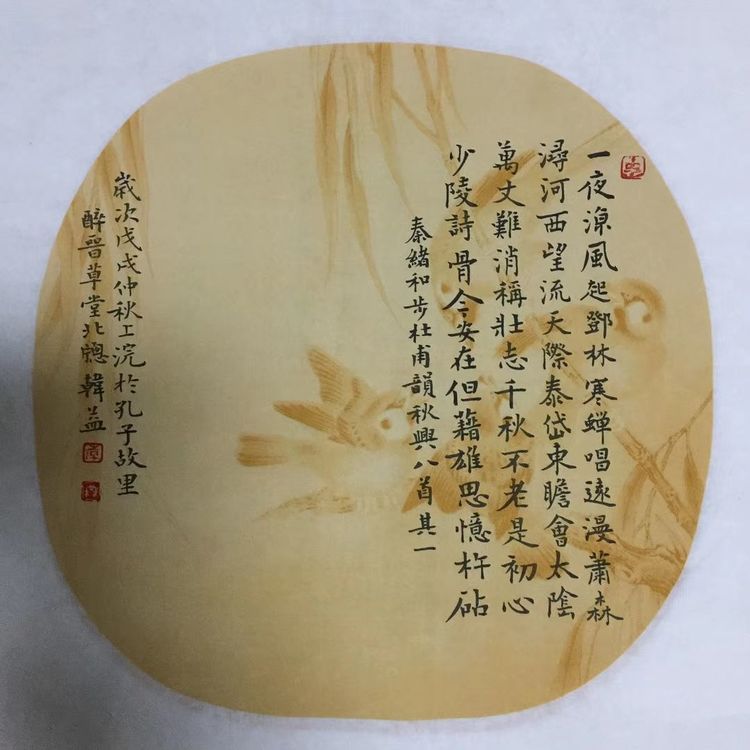 一夜涼風起鄧林寒蟬唱遠漫蕭森
潯河西望流天際泰岱東瞻會太陰
萬丈難消稱壯志千秋不老是初心
少陵詩骨今安在但籍雄思憶杵砧
秦緒和步杜甫韻秋興八首其一
歲次戊戌仲秋上浣於孔子故里
醉晉草堂北窻韓益